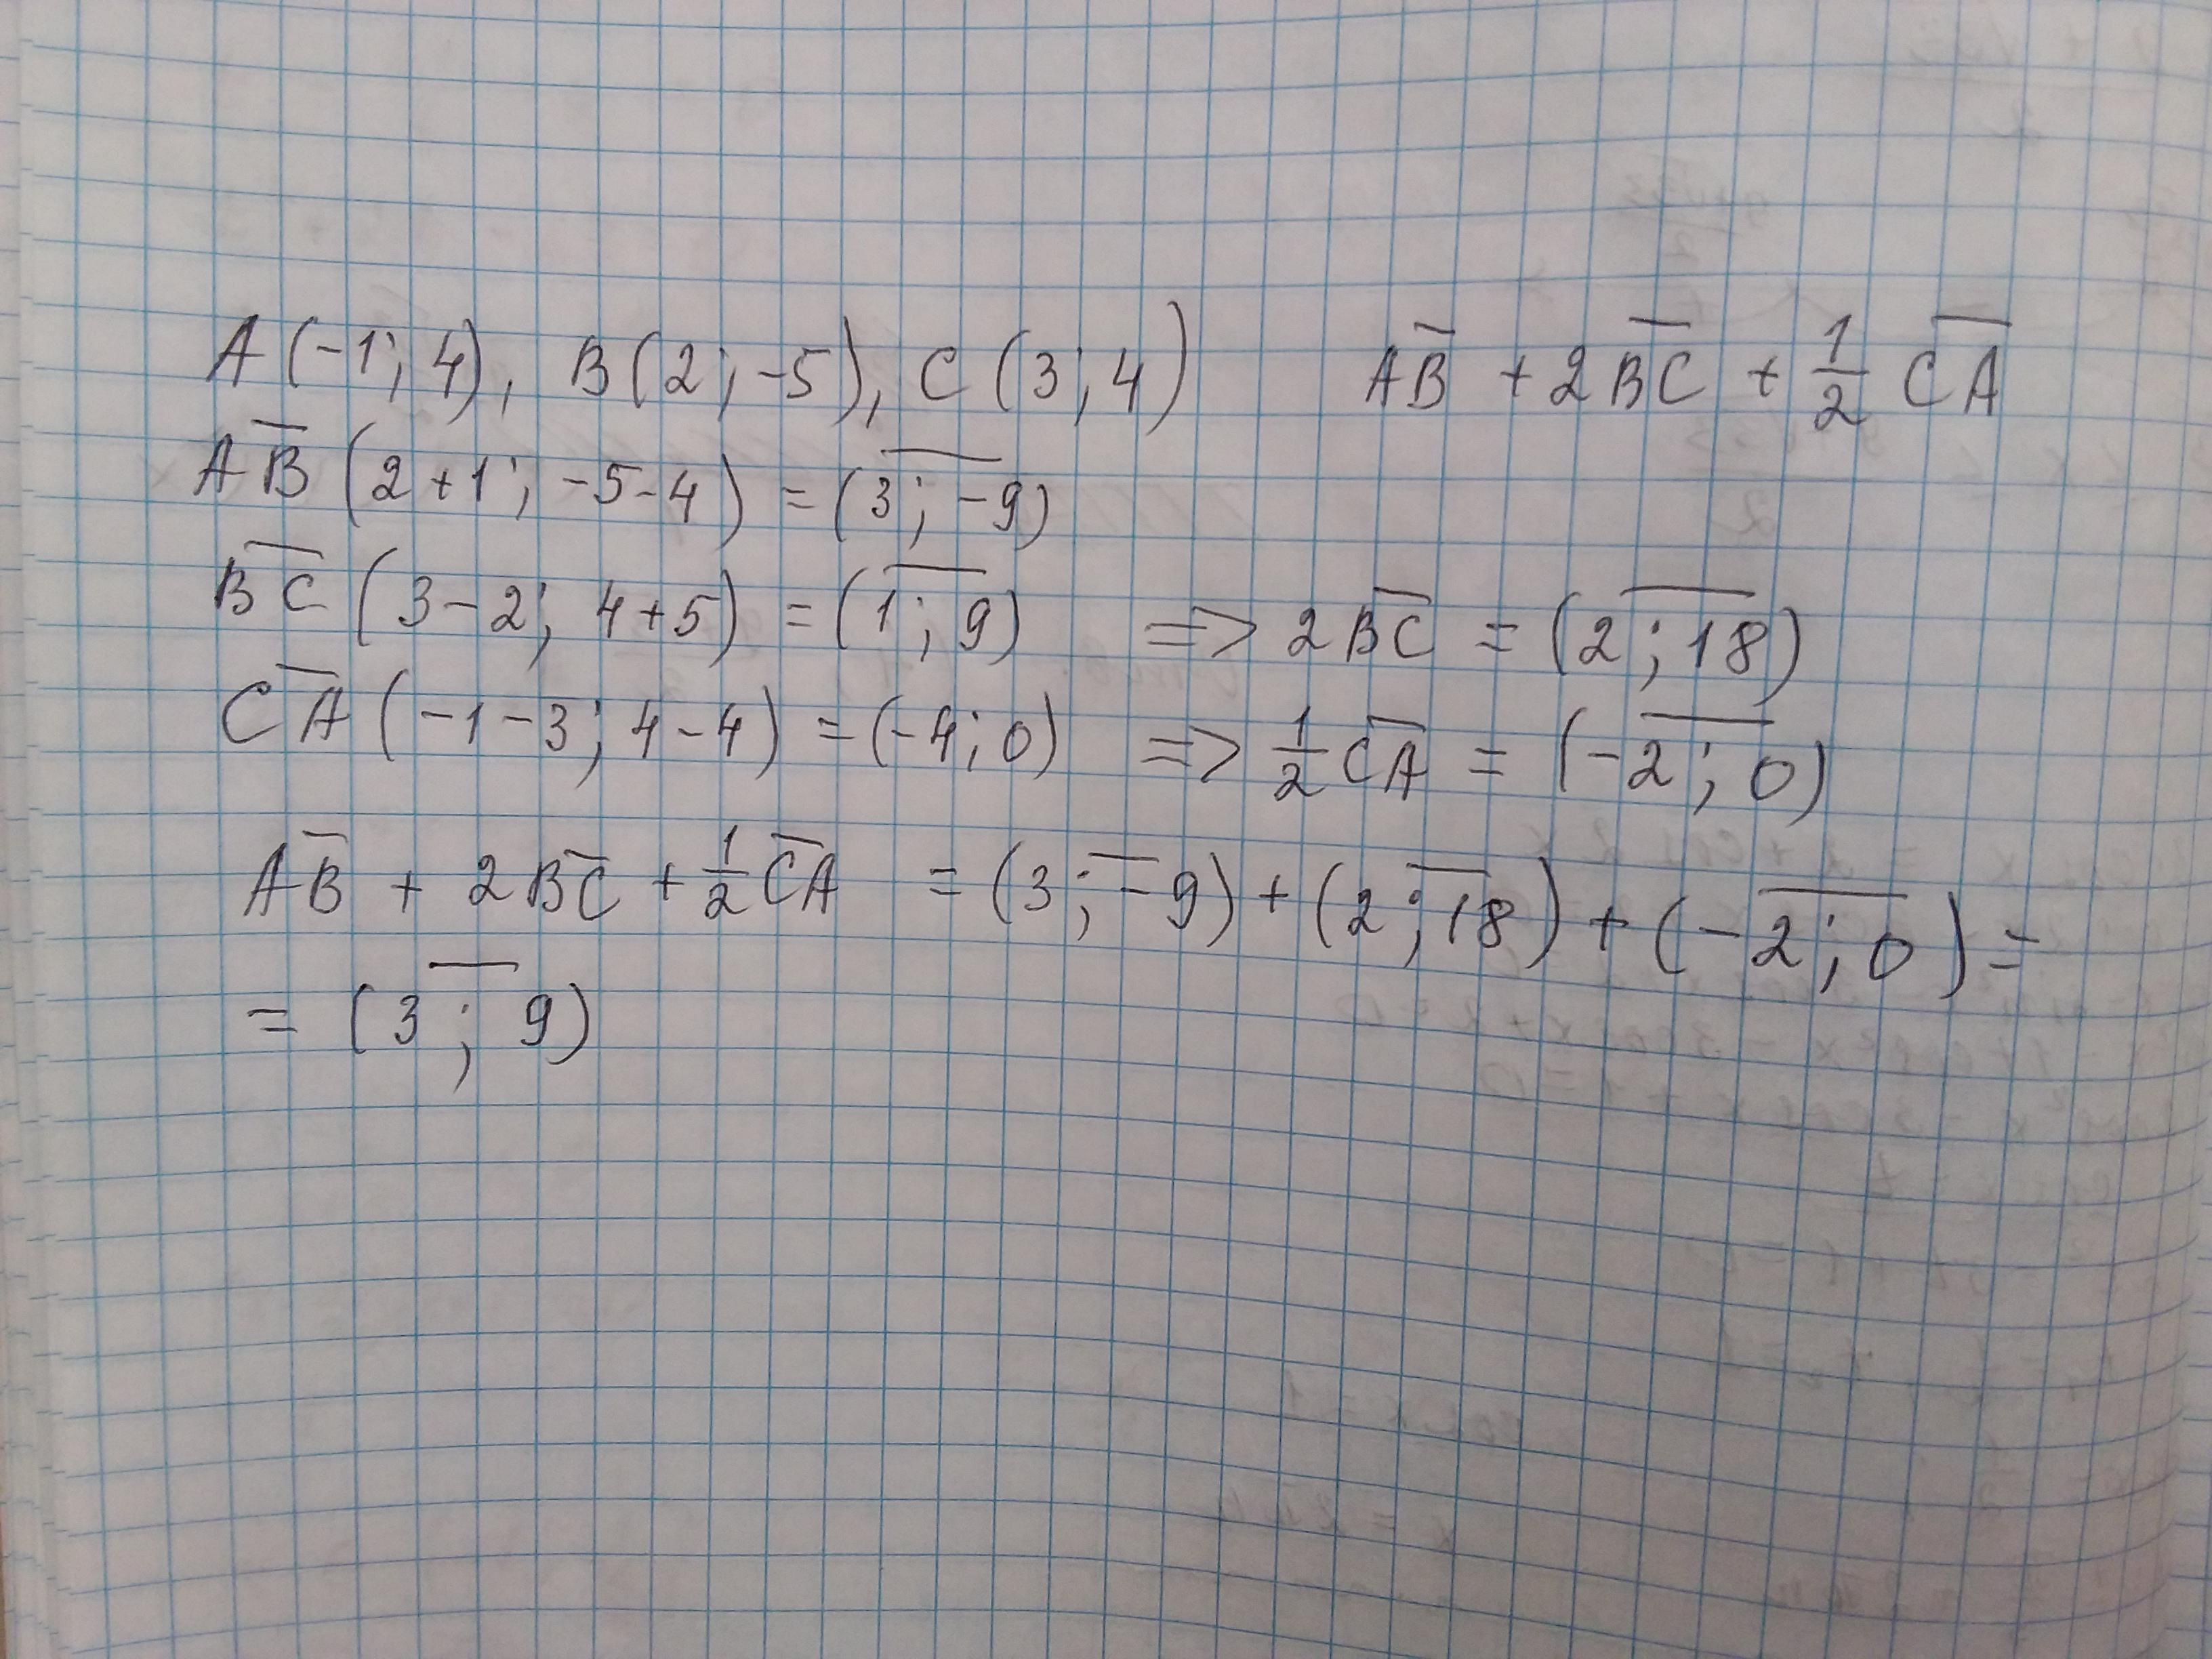 A(-1; 4), B(2; -5), C(3; 4) AB̅ + 2B̅C̅ + 1/2 C̅A̅
AB̅ (2+1; -5-4) = (3; -9)
B̅C̅ (3-2; 4+5) = (1; 9) => 2BC̅ = (2; 18)
CA̅ (-1-3; 4-4) = (-4; 0) => 1/2 CA̅ = (-2; 0)
AB̅ + 2BC̅ + 1/2 C̅A = (3; -9) + (2; 18) + (-2; 0) =
= (3; 9)